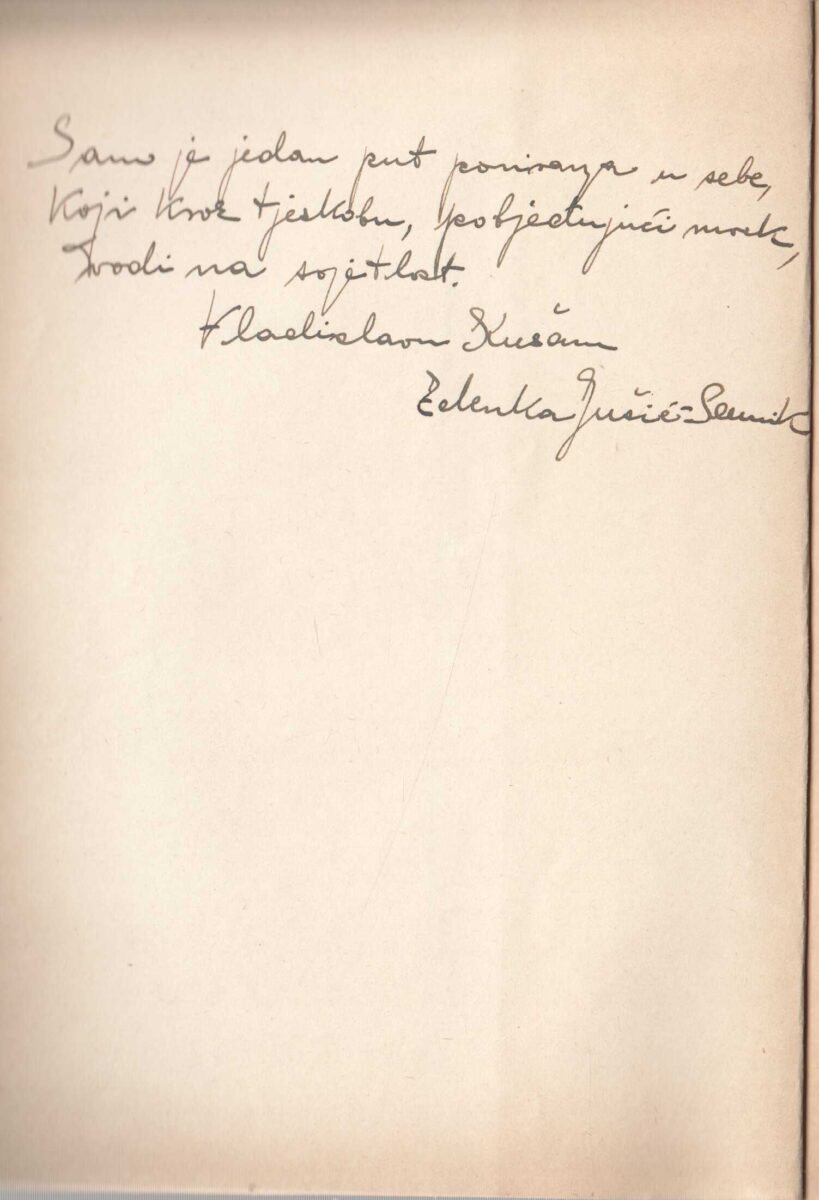 Samo je jedan put poniranja u sebe,
Koji kroz tjeskobu, pobjeđujući mrak,
vodi na svjetlost.
Vladislavu Kušanu
Zdenka Jušić-Seunik